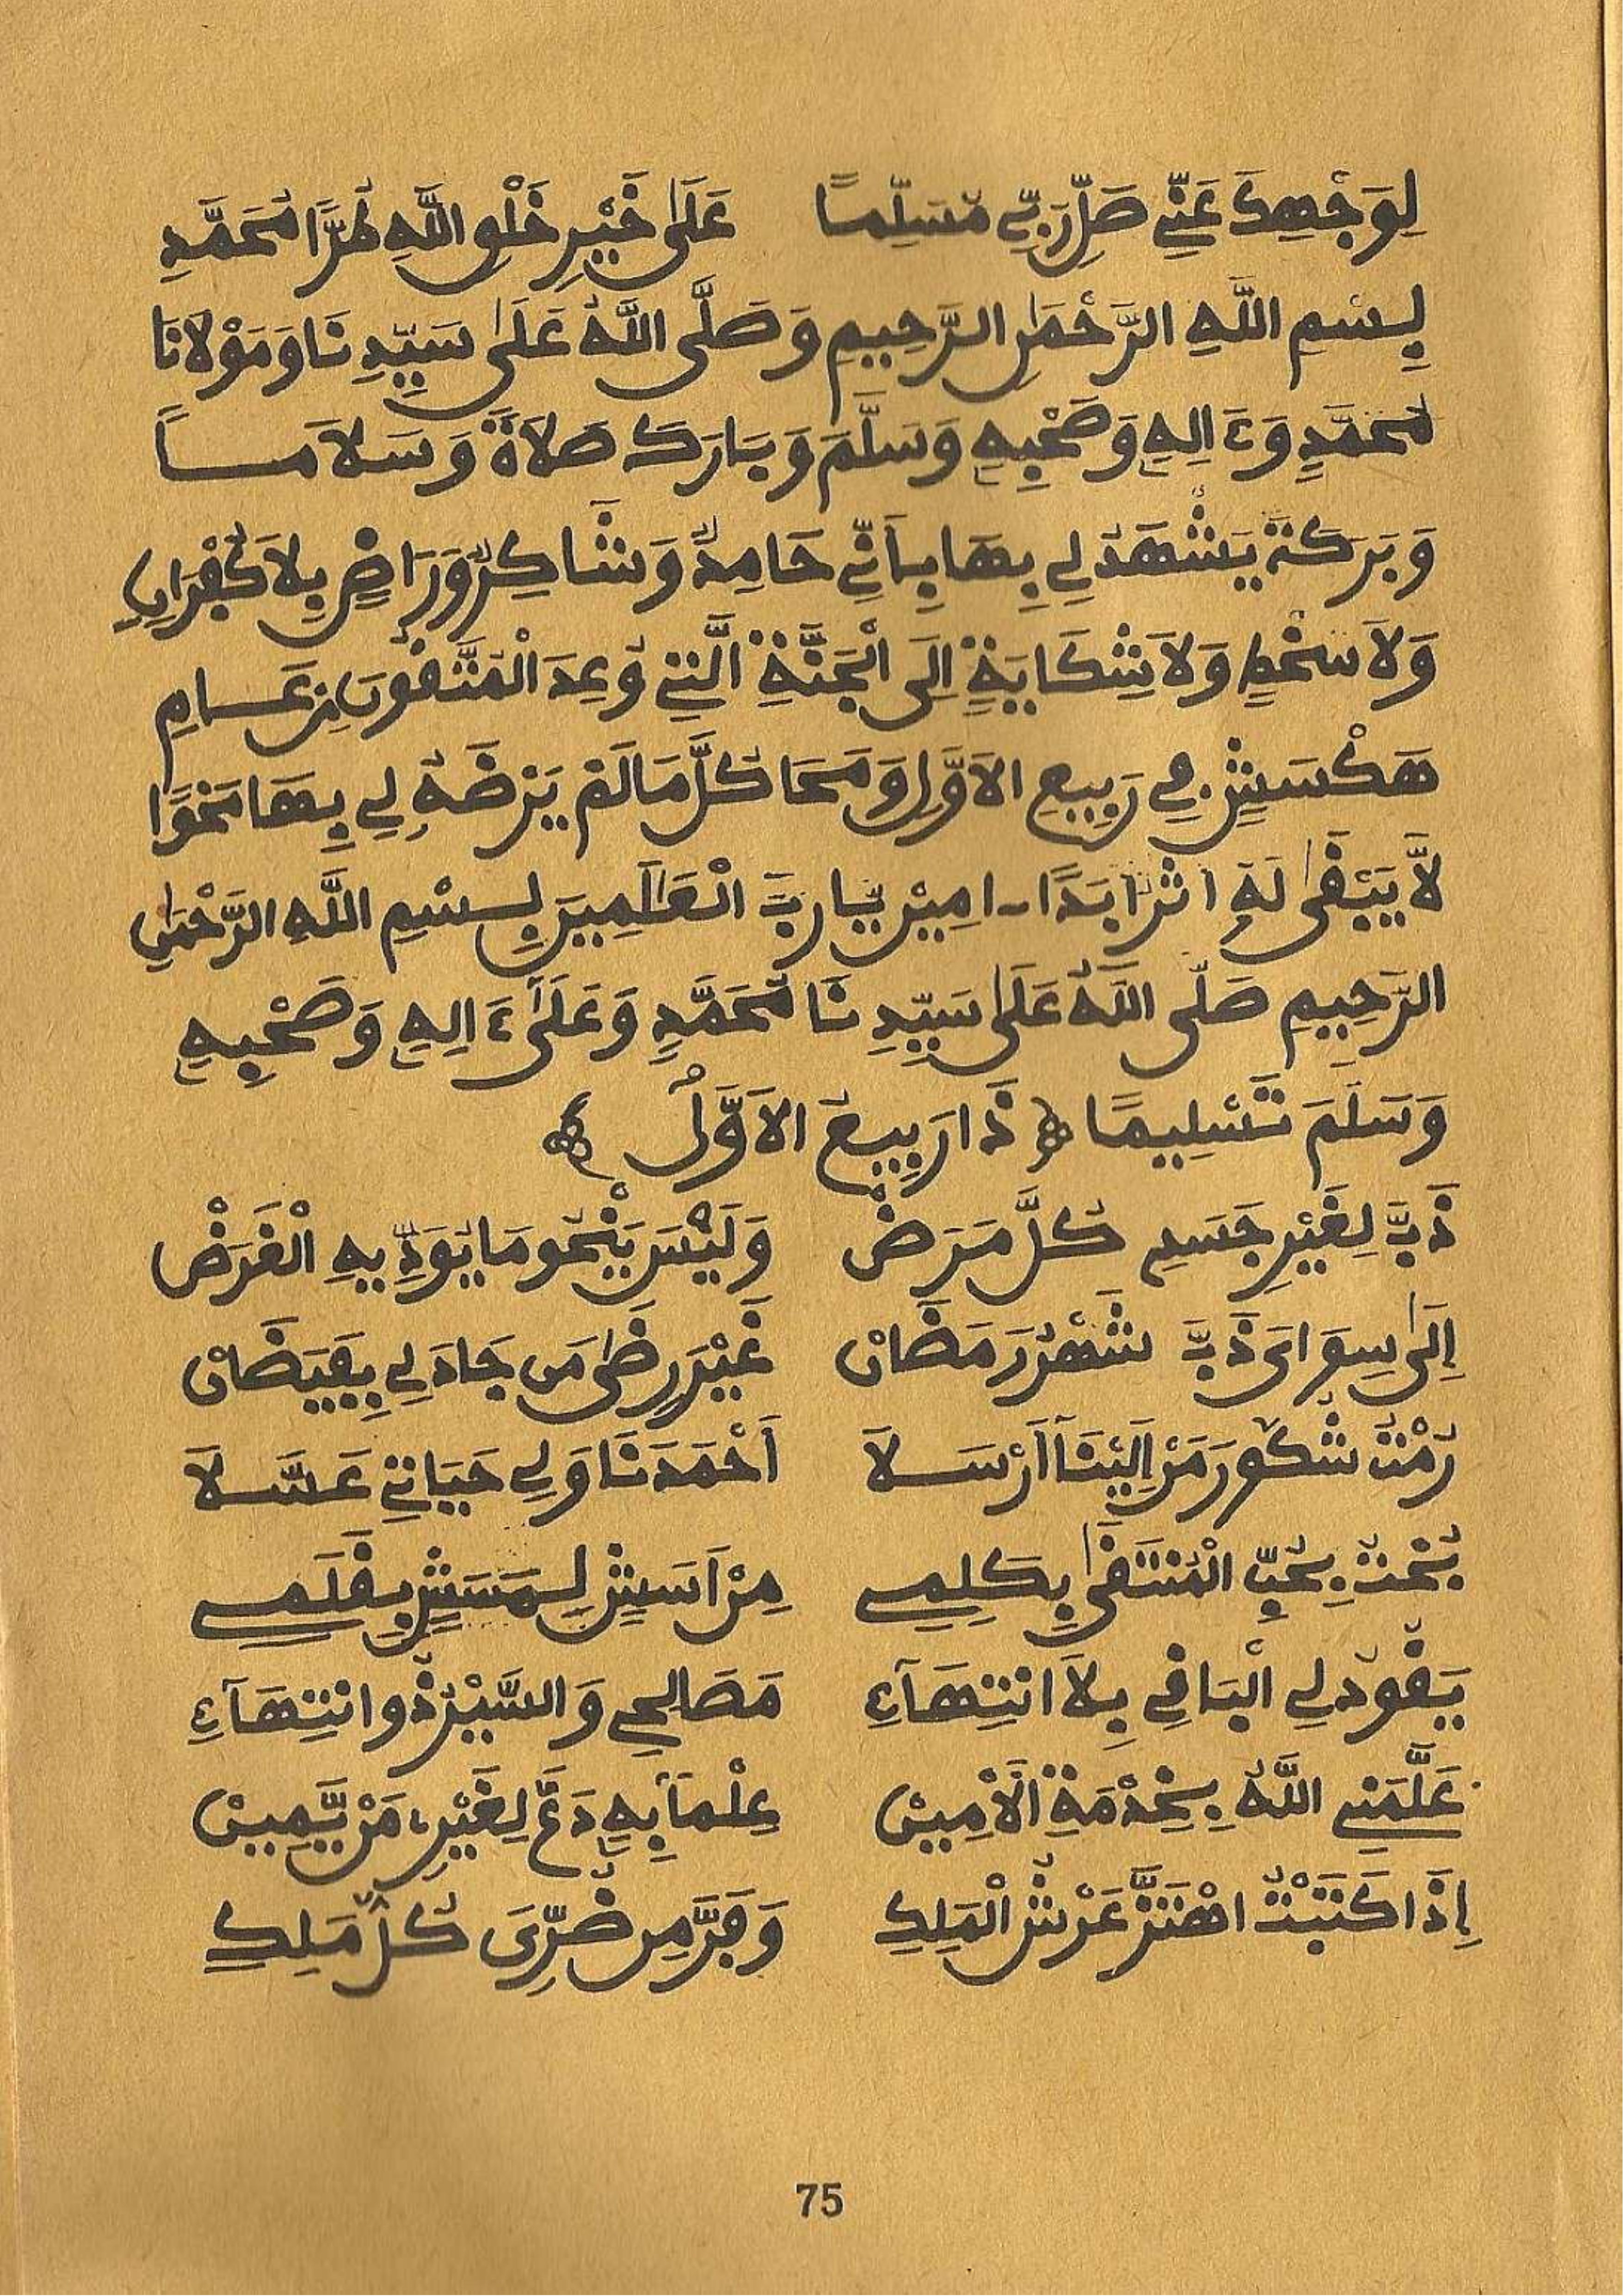 لِوَجْهِكَ عَنِّي صَلِّ رَبِّي مُسَلِّمًا عَلَى خَيْرِ خَلْقِ اللَّهِ طُرًّا مُحَمَّدِ
بِسْمِ اللَّهِ الرَّحْمَنِ الرَّحِيمِ وَصَلَّى اللَّهُ عَلَى سَيِّدِنَا وَمَوْلَانَا
مُحَمَّدٍ وَءَالِهِ وَصَحْبِهِ وَسَلَّمَ وَبَارَكَ صَلَاةً وَسَلَامًا
وَبَرَكَةً يَشْهَدُ لِي بِهَا بِأَنِّي حَامِدٌ وَشَاكِرٌ وَرَاضٍ بِلَا كُفْرَانٍ
وَلَا سَخْطٍ وَلَا شِكَايَةٍ إِلَى الْجَنَّةِ الَّتِي وُعِدَ الْمُتَّقُونَ مِنْ عَامِ
هَكْسَشٍ فِي رَبِيعِ الْأَوَّلِ وَمَحَا كُلَّ مَا لَمْ يَرْضَهُ لِي بِهَا مَحْوًا
لَّا يَبْقَى لَهُ أَثَرٌ أَبَدًا ـ امِينْ يَا رَبَّ الْعَالَمِينَ بِسْمِ اللَّهِ الرَّحْمَنِ
الرَّحِيمِ صَلَّى اللَّهُ عَلَى سَيِّدِنَا مُحَمَّدٍ وَعَلَى ءَالِهِ وَصَحْبِهِ
وَسَلَّمَ تَسْلِيمًا ﴿ ذَا رَبِيعُ الْأَوَّلُ ﴾
ذَبَّ لِغَيْرِ جَسَدِي كُلَّ مَرَضْ وَلَيْسَ يَنْحُو مَا يُؤَدِّيهِ الْغَرَضْ
إِلَى سِوَايَ ذَبَّ شَهْرُ رَمَضَانْ غَيْرَ رِضَى مَن جَادَ لِي بِفَيَضَانْ
رُمْتُ شُكُورَ مَنْ إِلَيْنَا أَرْسَلَا أَحْمَدَنَا وَلِي حَيَاتِي عَسَّلَا
بُحْتُ بِحُبِّ الْمُنْتَقَى بِكَلِمِي مِنْ أَسَشٍ لِـمَسَشٍ بِقَلَمِي
يَقُودُ لِي الْبَاقِي بِلَا انْتِهَآءِ مَصَالِحِي وَالسَّيْرُ ذُو انْتِهَآءِ
عَلَّمَنِي اللَّهُ بِخِدْمَةِ الْأَمِينْ عِلْمًا بِهِ دَعَّ لِغَيْرِي مَنْ يَّمِينْ
إِذَا كَتَبْتُ اهْتَزَّ عَرْشُ الْمَلِكِ وَفَرَّ مِن ضُرِّيَ كُلُّ مَلِكِ
75